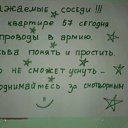 ажаемые соседи !!!
квартире 57 сегодня
проводы в армию.
ьба понять и простить.
о не сможет уснуть -
однимайтесь за снотворным